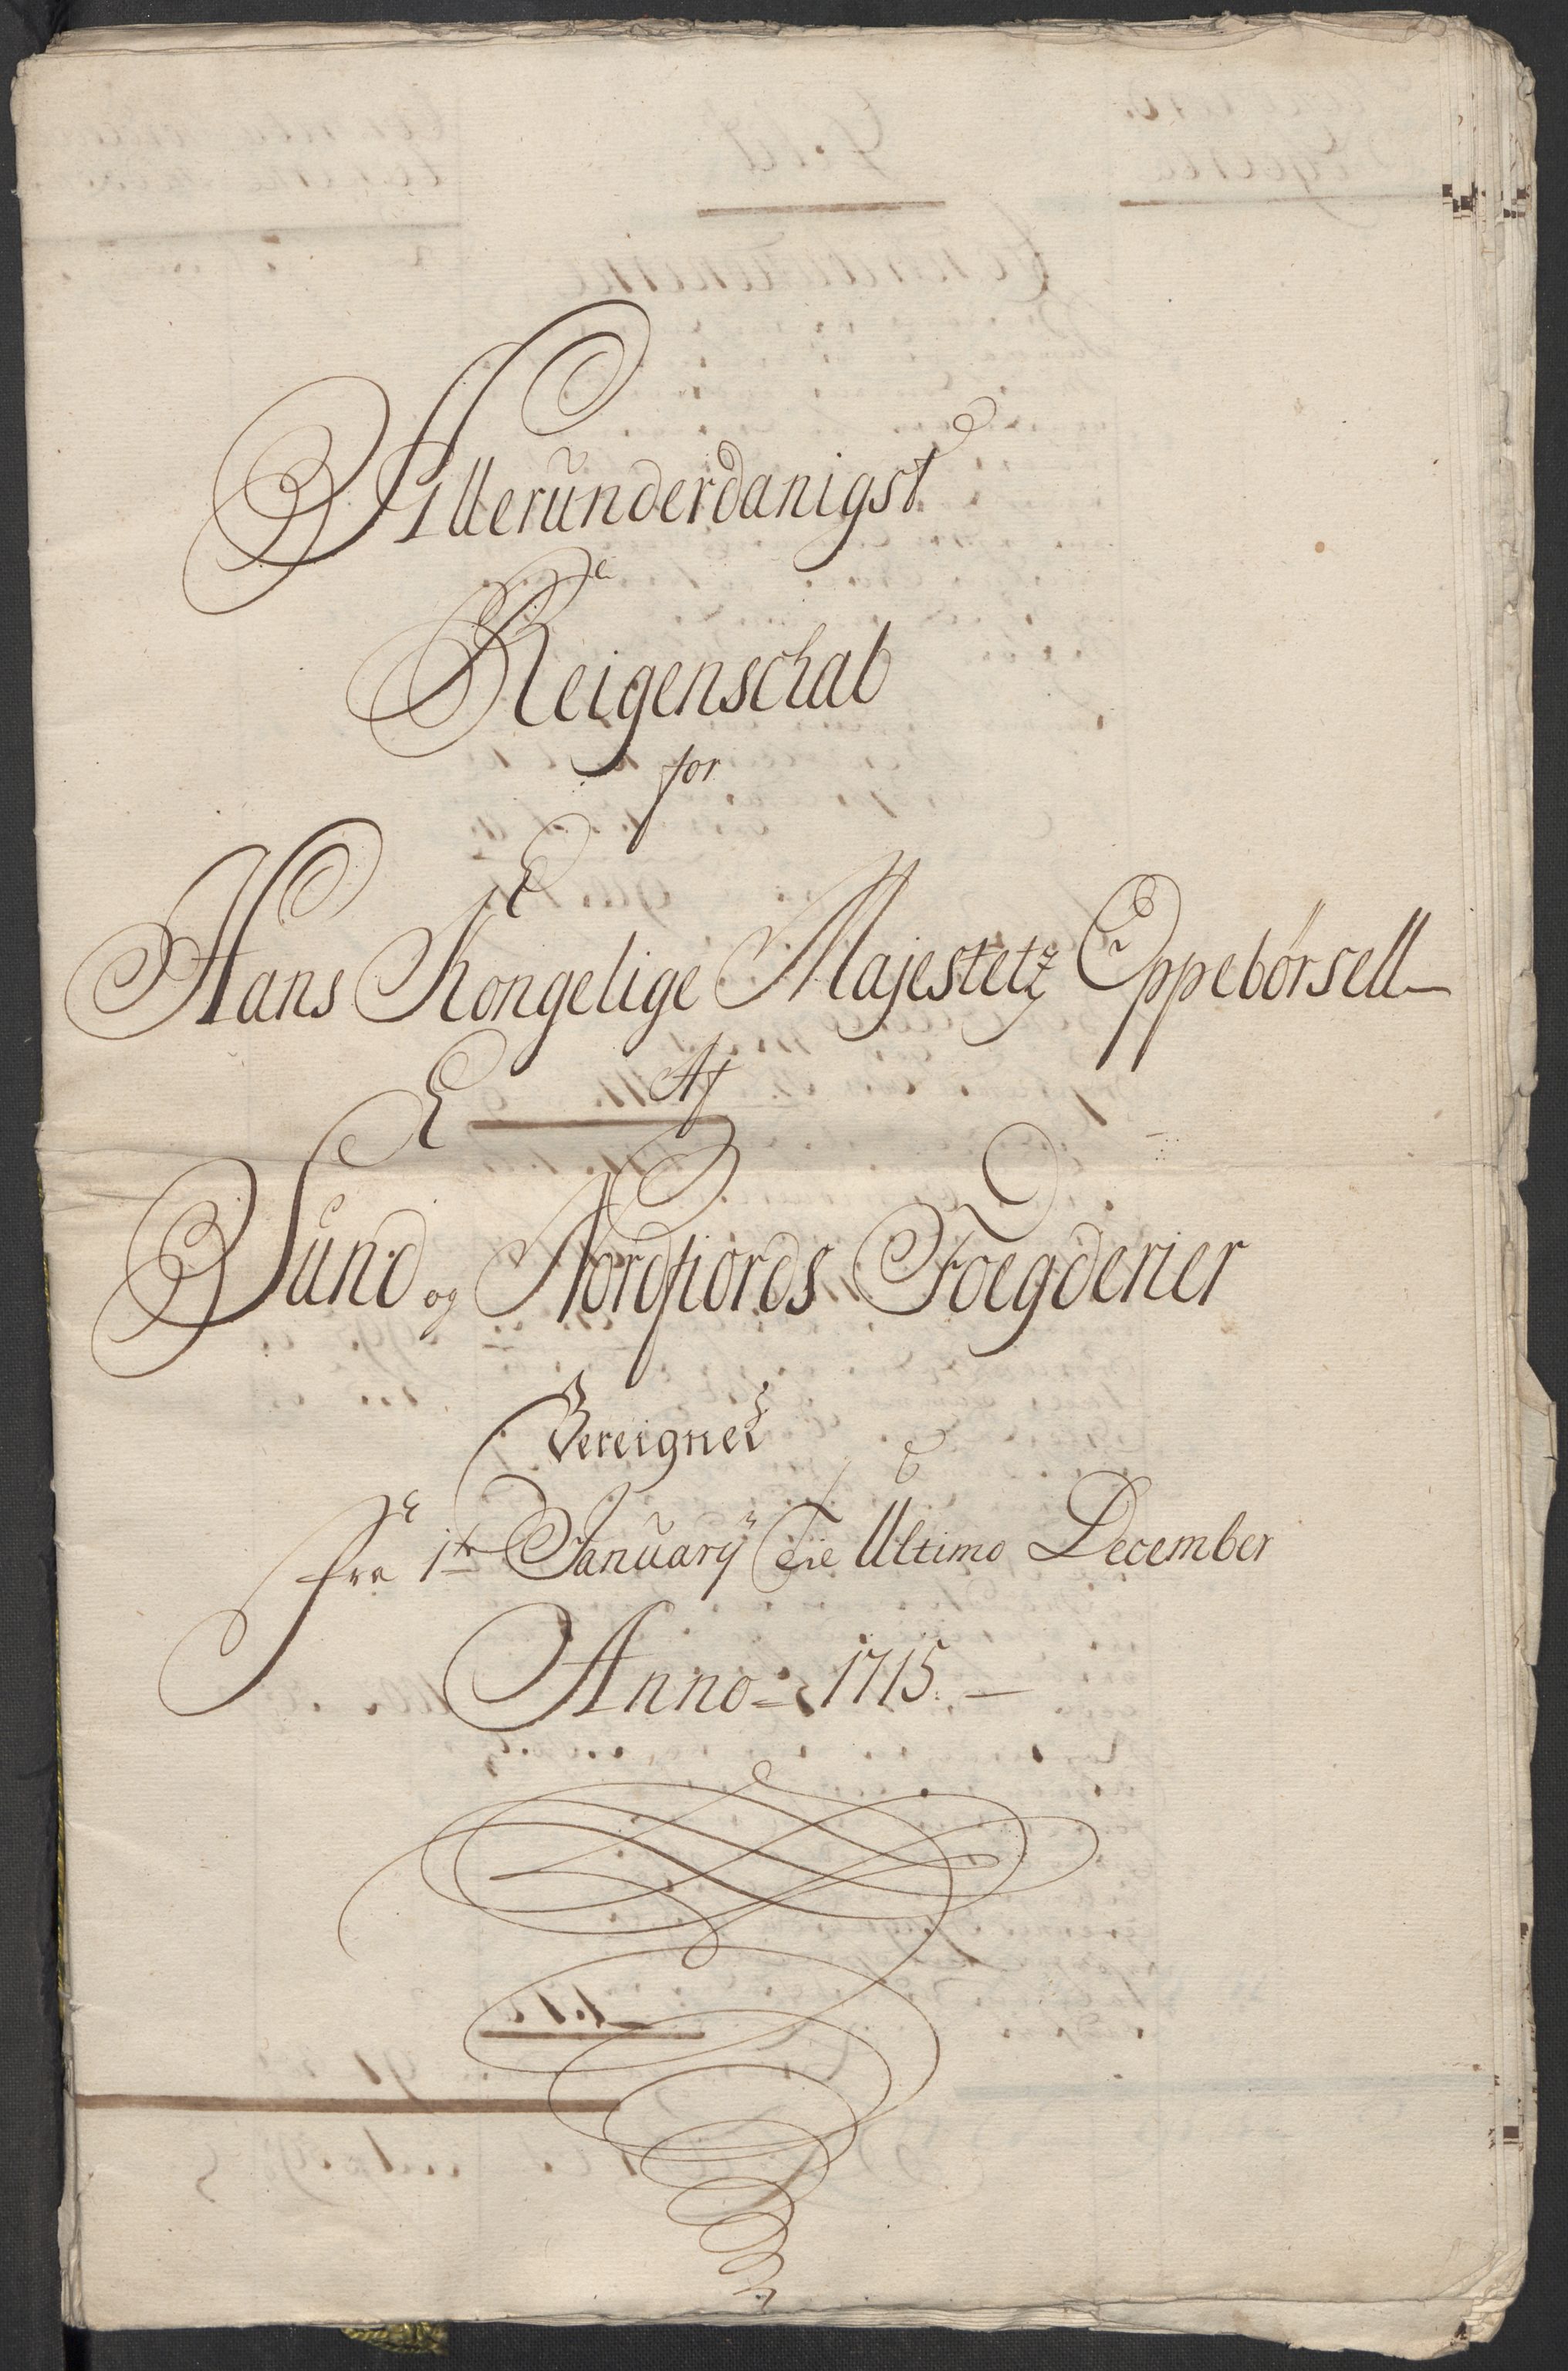 Allerunderdanigst
Reigenschab
for
Hans Kongelige Majestetz Oppebörsell
Af
Sund og Nordfiords Foegderier
Bereignet
fra 1te January Til Ultimo December
Anno 1715